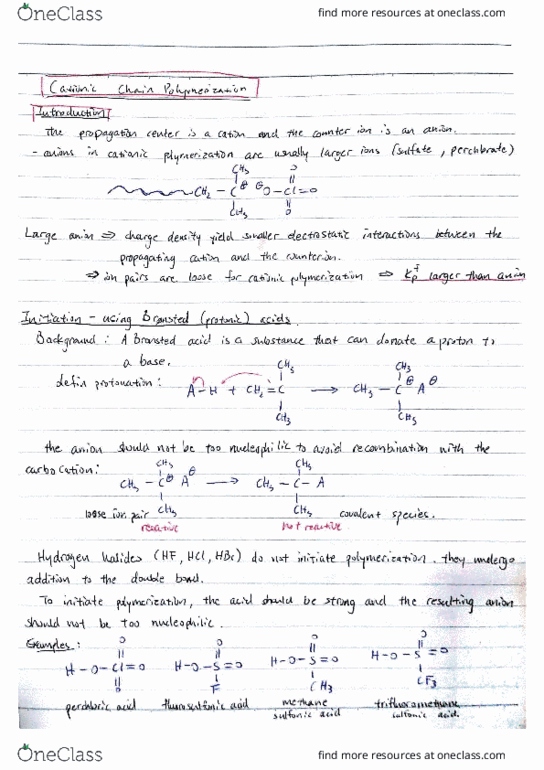 OneClass find more resources at oneclass.com
Cationic Chain Polymerization
Introduction
The propagation center is a cation and the counter ion is an anion.
- anions in cationic plymerization are usually larger ions (sulfate, perchlorate)
CH3 O
CH2 - C ⊕ ⊖O - Cl = O
CH3 O
Large anion ⇒ charge density yield smaller electrostatic interactions between the
propagating cation and the counterion.
⇒ ion pairs are loose for cationic polymerization ⇒ kp± larger than anion
Initiation - using Bronsted (protonic) acids.
Background: A bransted acid is a substance that can donate a proton to
a base.
CH3 CH3
defin protonation: A - H + CH2 = C → CH3 - C ⊕ A⊖
CH3 CH3
the anion should not be too nucleophilic to avoid recombination with the
carbocation:
CH3 CH3
CH3 - C⊕ A⊖ → CH3 - C - A
loose ion pair CH3 CH3 covalent species.
reactive not reactive
Hydrogen halides (HF, HCl, HBr) do not initiate polymerization. they undergo
addition to the double bond.
To initiate polymerization, the acid should be strong and the resulting anion
should not be too nucleophilic.
Examples:
O O O O
H - O - Cl = O H - O - S = O H - O - S = O H - O - S = O
O F CH3 CF3
perchloric acid fluorosulfonic acid methane sulfonic acid trifluoromethane sulfonic acid.
OneClass find more resources at oneclass.com